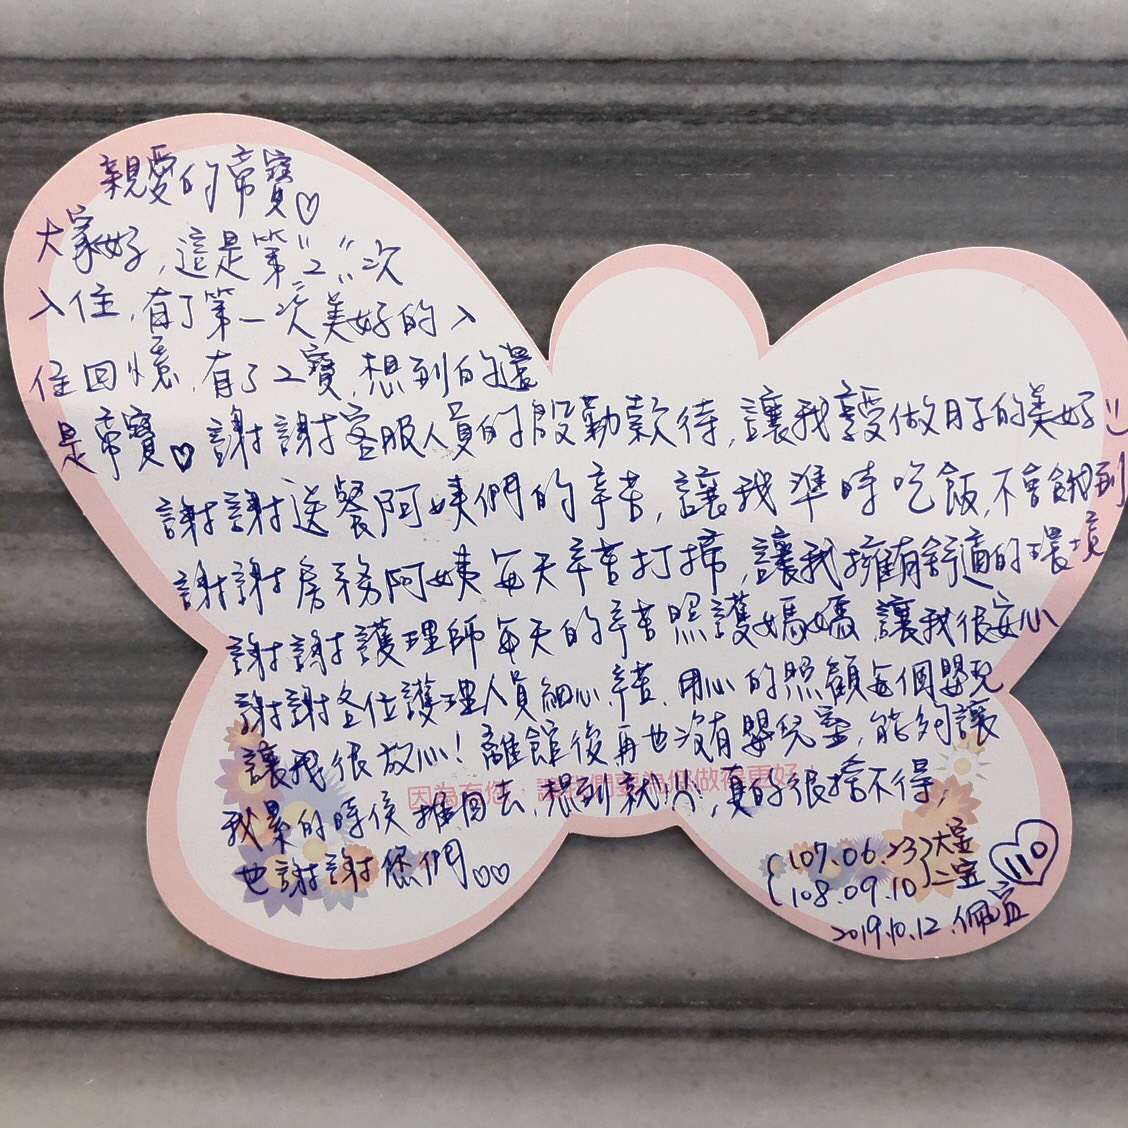 親愛的帝寶♡
大家好,這是第"2"次
入住,有了第一次美好的入
住回憶,有了2寶,想到的還
是帝寶♡謝謝客服人員的殷勤款待,讓我享受做月子的美好:)
謝謝送餐阿姨們的辛苦,讓我準時吃飯,不會餓到
謝謝房務阿姨每天辛苦打掃,讓我擁有舒適的環境
謝謝護理師每天的辛苦照護媽媽 讓我很安心
謝謝各位護理人員細心、辛苦、用心的照顧每個嬰兒
讓我很放心!離館後再也沒有嬰兒室,能夠讓
因為有您,讓我們要為您做得更好!
我累的時侯推回去,想到就:(,真的很捨不得,
也謝謝您們♡♡
(107.06.23)大寶
(108.09.10)二寶
110
2019.10.12.佩宜